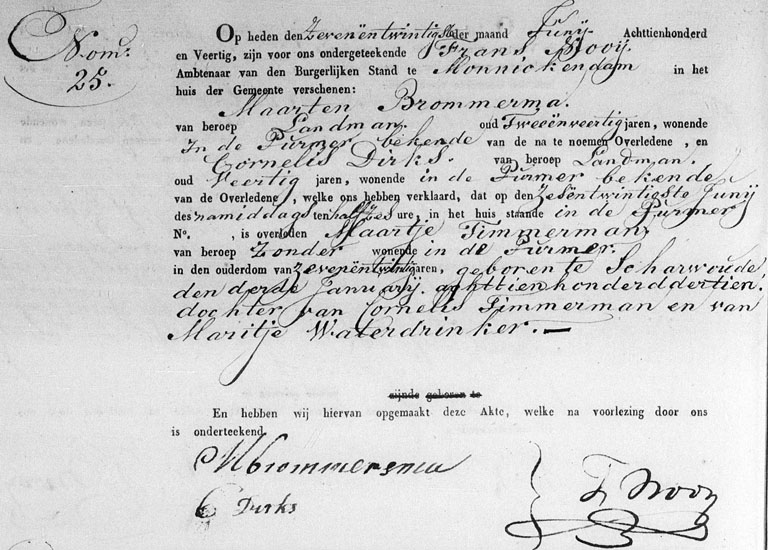 Nom.
25.
Op heden den zevenëntwintigste der maand Junij Achttienhonderd
en Veertig, zijn voor ons ondergeteekende Frans Nooij.
Ambtenaar van den Burgerlijken Stand te Monnickendam in het
huis der Gemeente verschenen:
Maarten Brommersma.
van beroep Landman. oud Tweeënveertig jaren, wonende
In de Purmer bekende van de na te noemen Overledene, en
Cornelis Dirks. van beroep Landman.
oud Veertig jaren, wonende in de Purmer bekende
van de Overledene, welke ons hebben verklaard, dat op den zesëntwintigste Junij
des namiddags ten half zes ure, in het huis staande in de Purmer
No. , is overloden Maartje Timmerman,
van beroep Zonder wonende in de Purmer.
in den ouderdom van zevenëntwintig jaren, geboren te Scharwoude
den derde Januarij achttienhonderddertien.
dochter van Cornelis Timmerman en van
Maritje Waterdrinker.—
zijnde geboren te
En hebben wij hiervan opgemaakt deze Akte, welke na voorlezing door ons
is onderteekend.
M Brommersma
C Dirks
F Nooij